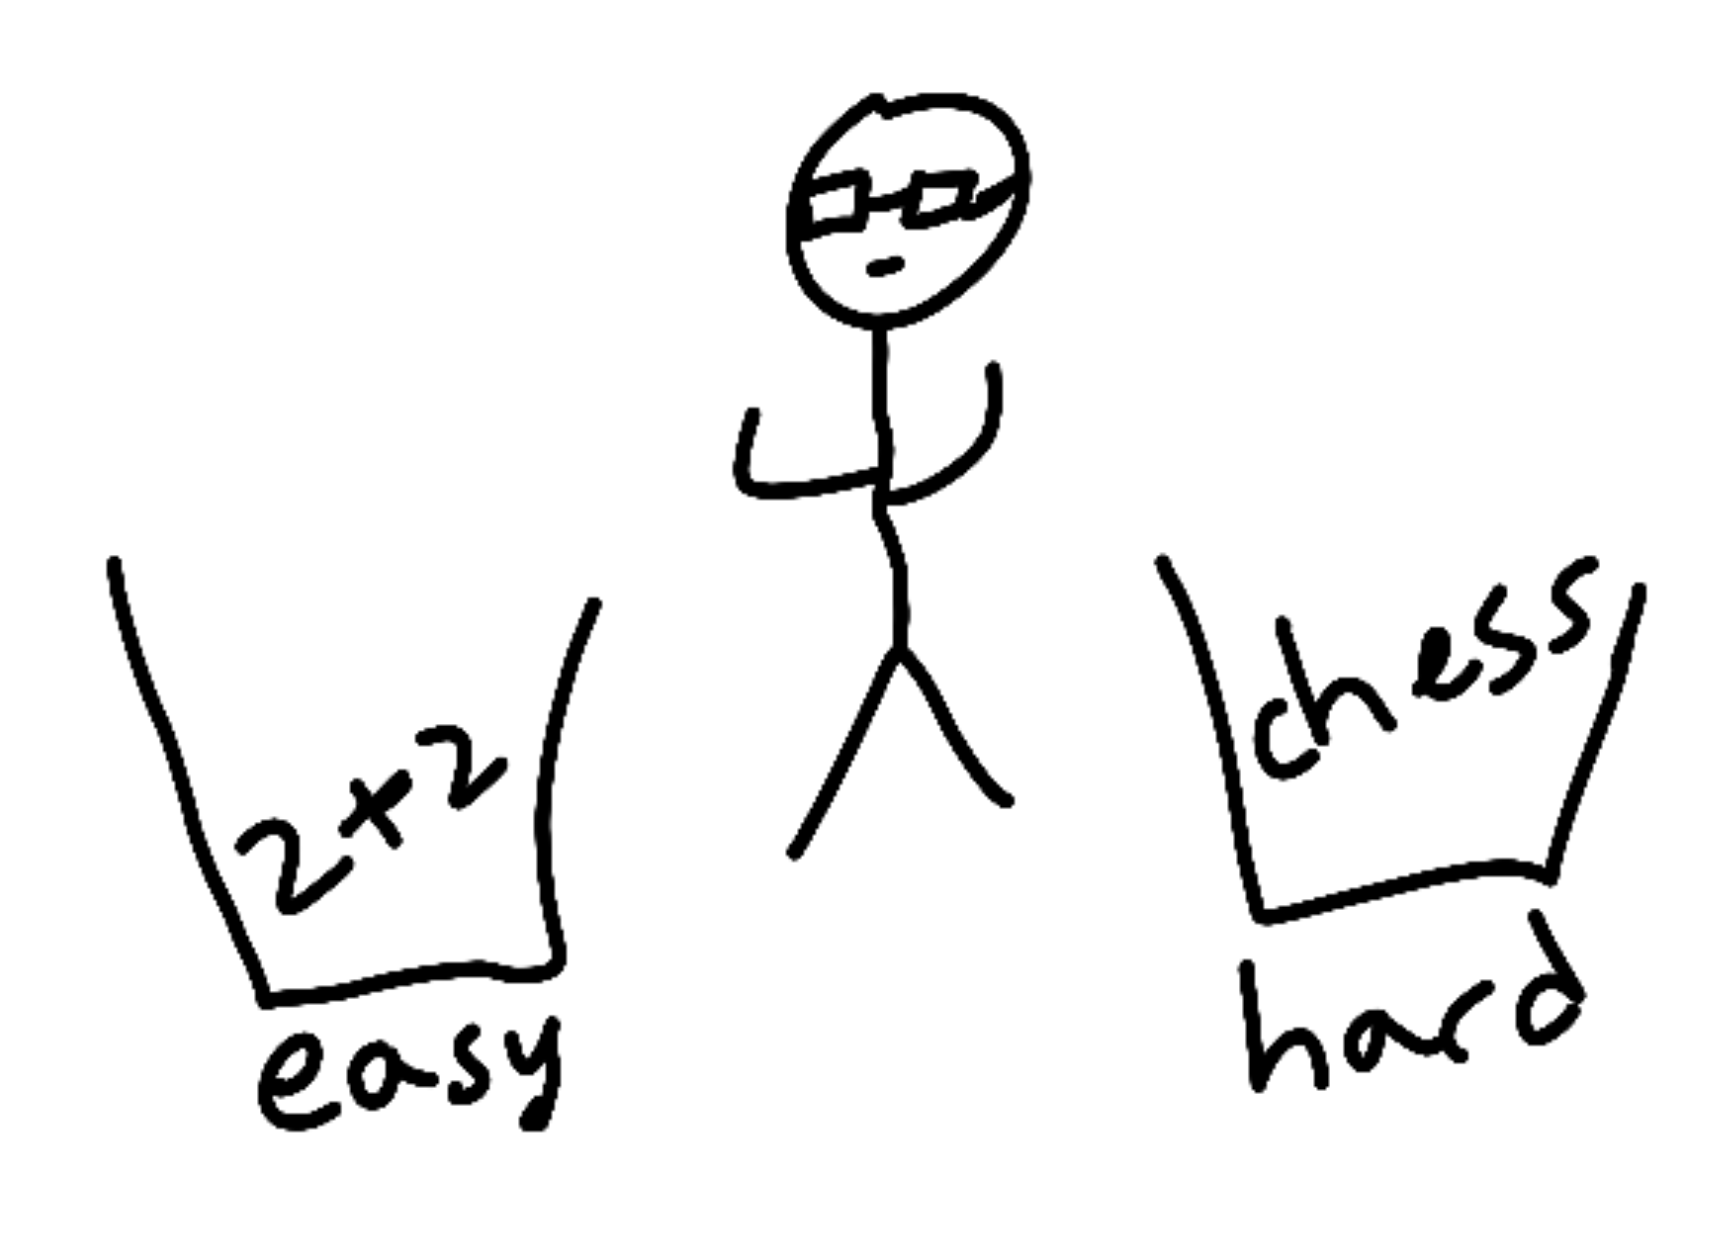 2+2
easy
chess
hard